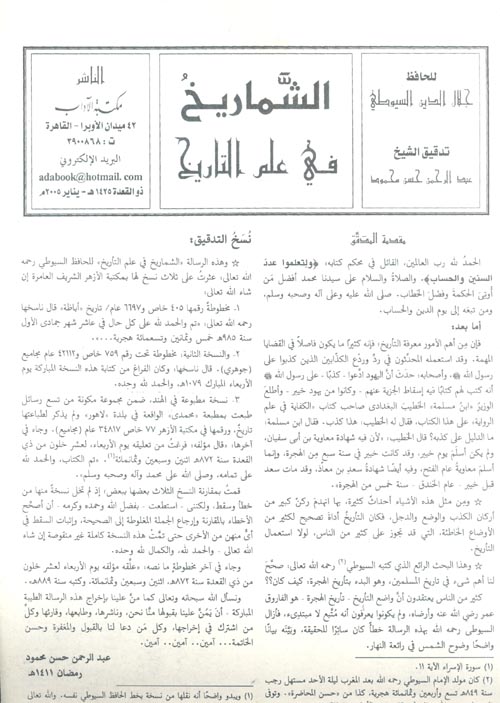 للحافظ
جلال الدين السيوطي
تدقيق الشيخ
عبد الرحمن حسن محمود
الشَّماريخُ
في علم التاريخ
الناشر
مكتبة الآداب
٤٢ ميدان الأوبرا - القاهرة
ت : ٣٩٠٠٨٦٨
البريد الإلكتروني
adabook@hotmail.com
ذو القعدة ١٤٢٥هـ - يناير ٢٠٠٥م
مقدمة المدقق
الحمدُ لله رب العالمين، القائل في محكم كتابه: ﴿ولتعلموا عدد
السنين والحساب﴾، والصلاةُ والسلام على سيدنا محمد أفضل مَن
أوتيَ الحكمة وفصْلَ الخطاب. صلى الله عليه وعلى آله وصحبه وسلم،
ومن تبعه إلى يوم الدين والحساب.
أما بعد:
فإن مِن أهم الأمور معرفة التأريخ، فإنه كثيرًا ما يكون فاصلاً في القضايا
المهمة. وقد استعمله المحدِّثون في ردِّ وردْع الكذَّابين الذين كذبوا على
رسول الله ﷺ وأصحابه: حدَث أنَّ اليهود ادَّعوا - كذبًا - على رسول الله ﷺ
أنه كتب لهم كتابًا فيه إسقاط الجزية عنهم - وكانوا من يهود خيبر - وأطلَع
الوزيرُ «ابنُ مسلمة» الخطيبَ البغدادي صاحب كتاب «الكفاية في علم
الرواية» على هذا الكتاب. فقال له الخطيب: هذا كذب. فقال ابن مسلمة:
ما الدليل على كذبه؟ قال الخطيب: «لأن فيه شهادة معاوية بن أبي سفيان،
ولم يكن أسلمَ يوم خيبر، وقد كانت خيبر في سنة سبع مِن الهجرة، وإنما
أسلمَ معاويةُ عام الفتح، وفيه أيضًا شهادةُ سعدِ بن معاذ، وقد مات سعد
قبل خيبر - عام الخندق - سنة خمس من الهجرة».
☆ ومِن مثل هذه الأشياء أحداثٌ كثيرة، بها انهدمَ ركنٌ كبير من
أركان الكذب والوضع والدجل. فكان التأريخُ أداةَ تصحيح لكثير من
الأوضاع الخاطئة، التي قد تجوز على كثير من الناس، لولا استعمال
التأريخ.
☆ وهذا البحث الرائع الذي كتبه السيوطي (٢) رحمه الله تعالى: صحَّحَ
لنا أهم شيء في تأريخ المسلمين، وهو البدء بتأريخ الهجرة، كيف كان؟؟
كثير من الناس يعتقدون أنَّ واضع التأريخ - تأريخ الهجرة - هو الفاروق
عمر رضي الله عنه وأرضاه. ولم يكونوا يعرفون أنه مُتَّبِع لا مبتدِئ، فأزال
السيوطي رحمه الله بهذه الرسالة خطأً كان سائرًا للحقيقة، وبيَّنه بيانًا
واضحًا وضوح الشمس في رائعة النهار.
(١) سورة الإسراء الآية ١١.
(٢) كان مولد الإمام السيوطي رحمه الله بعد المغرب ليلة الأحد مستهل رجب
سنة ٨٤٩هـ تسع وأربعين وثمانمائة هجرية. كذا من «حسن المحاضرة»، وتوفى
نُسَخُ التدقيق:
☆ وهذه الرسالة «الشماريخ في علم التأريخ» للحافظ السيوطي رحمه
الله تعالى، عثرتُ على ثلاث نسخ لها بمكتبة الأزهر الشريف العامرة إن
شاء الله تعالى:
١. مخطوطة رقمها ٤٠٥ خاص و٦٦٩٧ عام/ تاريخ «أباظة» قال ناسخها
رحمه الله تعالى: «تم والحمد لله على كل حال في عاشر شهر جمادى الأول
سنة ٩٨٥هـ خمس وثمانين وتسعمائة هجرية....».
٢. والنسخة الثانية، مخطوطة تحت رقم ٧٥٩ خاص و٤٢١١٢ عام مجاميع
(جوهري). قال ناسخها: وكان الفراغ من كتابة هذه النسخة المباركة يوم
الأربعاء المبارك ١٠٧٩هـ، والحمد لله وحده.
٣. نسخة مطبوعة في الهند، ضمن مجموعة مكونة من تسع رسائل
طبعت بمطبعة «محمدي» الواقعة في بلدة «لاهور» ولم يذكر لطباعتها
تاريخ، ورقمها في مكتبة الأزهر ٧٧ خاص ٣٤٨١٧ عام (مجاميع). وجاء في
آخرها: «قال مؤلفه: فرغتُ من تعليقه يوم الأربعاء، لعشر خلون من ذي
القعدة سنة ٨٧٢هـ اثنين وسبعين وثمانمائة(١). «تم الكتاب، والحمد لله
على تمامه، وصلى الله على محمد وآله وصحبه وسلم..
قمتُ بمقارنة النسخ الثلاث بعضها ببعض؛ إذ لم تخل نسخةٌ منها من
خطأ وسقط، ولكنني - استطعت - بفضل الله وحده وكرمه - أن أصحِّح
الأخطاء بالمقارنة وإرجاع الجملة المغلوطة إلى الصحيحة، وإثبات السقط في
أيٍّ منهن من الأخرى حتى تمَّتْ هذه النسخة كاملة غير منقوصة إن شاء
الله تعالى - والحمد لله، والكمال لله وحده.
وجاء في آخر مخطوطةٍ ما نصه: «علَّقه مؤلفه يوم الأربعاء لعشر خلون
من ذي القعدة سنة ٨٧٢هـ، اثنين وسبعين وثمانمائة، وكتبه سنة ٨٨٩هـ.
ونسأل الله سبحانه وتعالى كما منَّ علينا بإخراج هذه الرسالة الطيبة
المباركة - أن يَمُنَّ علينا بقبولها منَّا نحن، وناشرها، وطابعها، وقارئها وكلِّ
من اشترك في إخراجها، وكل من دعا لنا بالقبول والمغفرة وحسن
الخاتمة... آمين.. آمين.. آمين.
عبد الرحمن حسن محمود
رمضان ١٤١١هـ
(١) ويبدو واضحًا أنه نقلها من نسخة بخط الحافظ السيوطي نفسه. والله تعالى